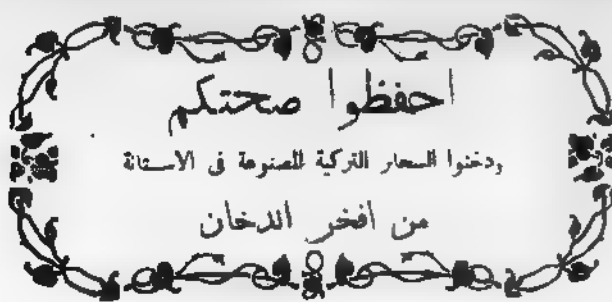 احفظوا صحتكم
ودخنوا السعار التركية المصنوعة فى الاستانة
من افخر الدخان